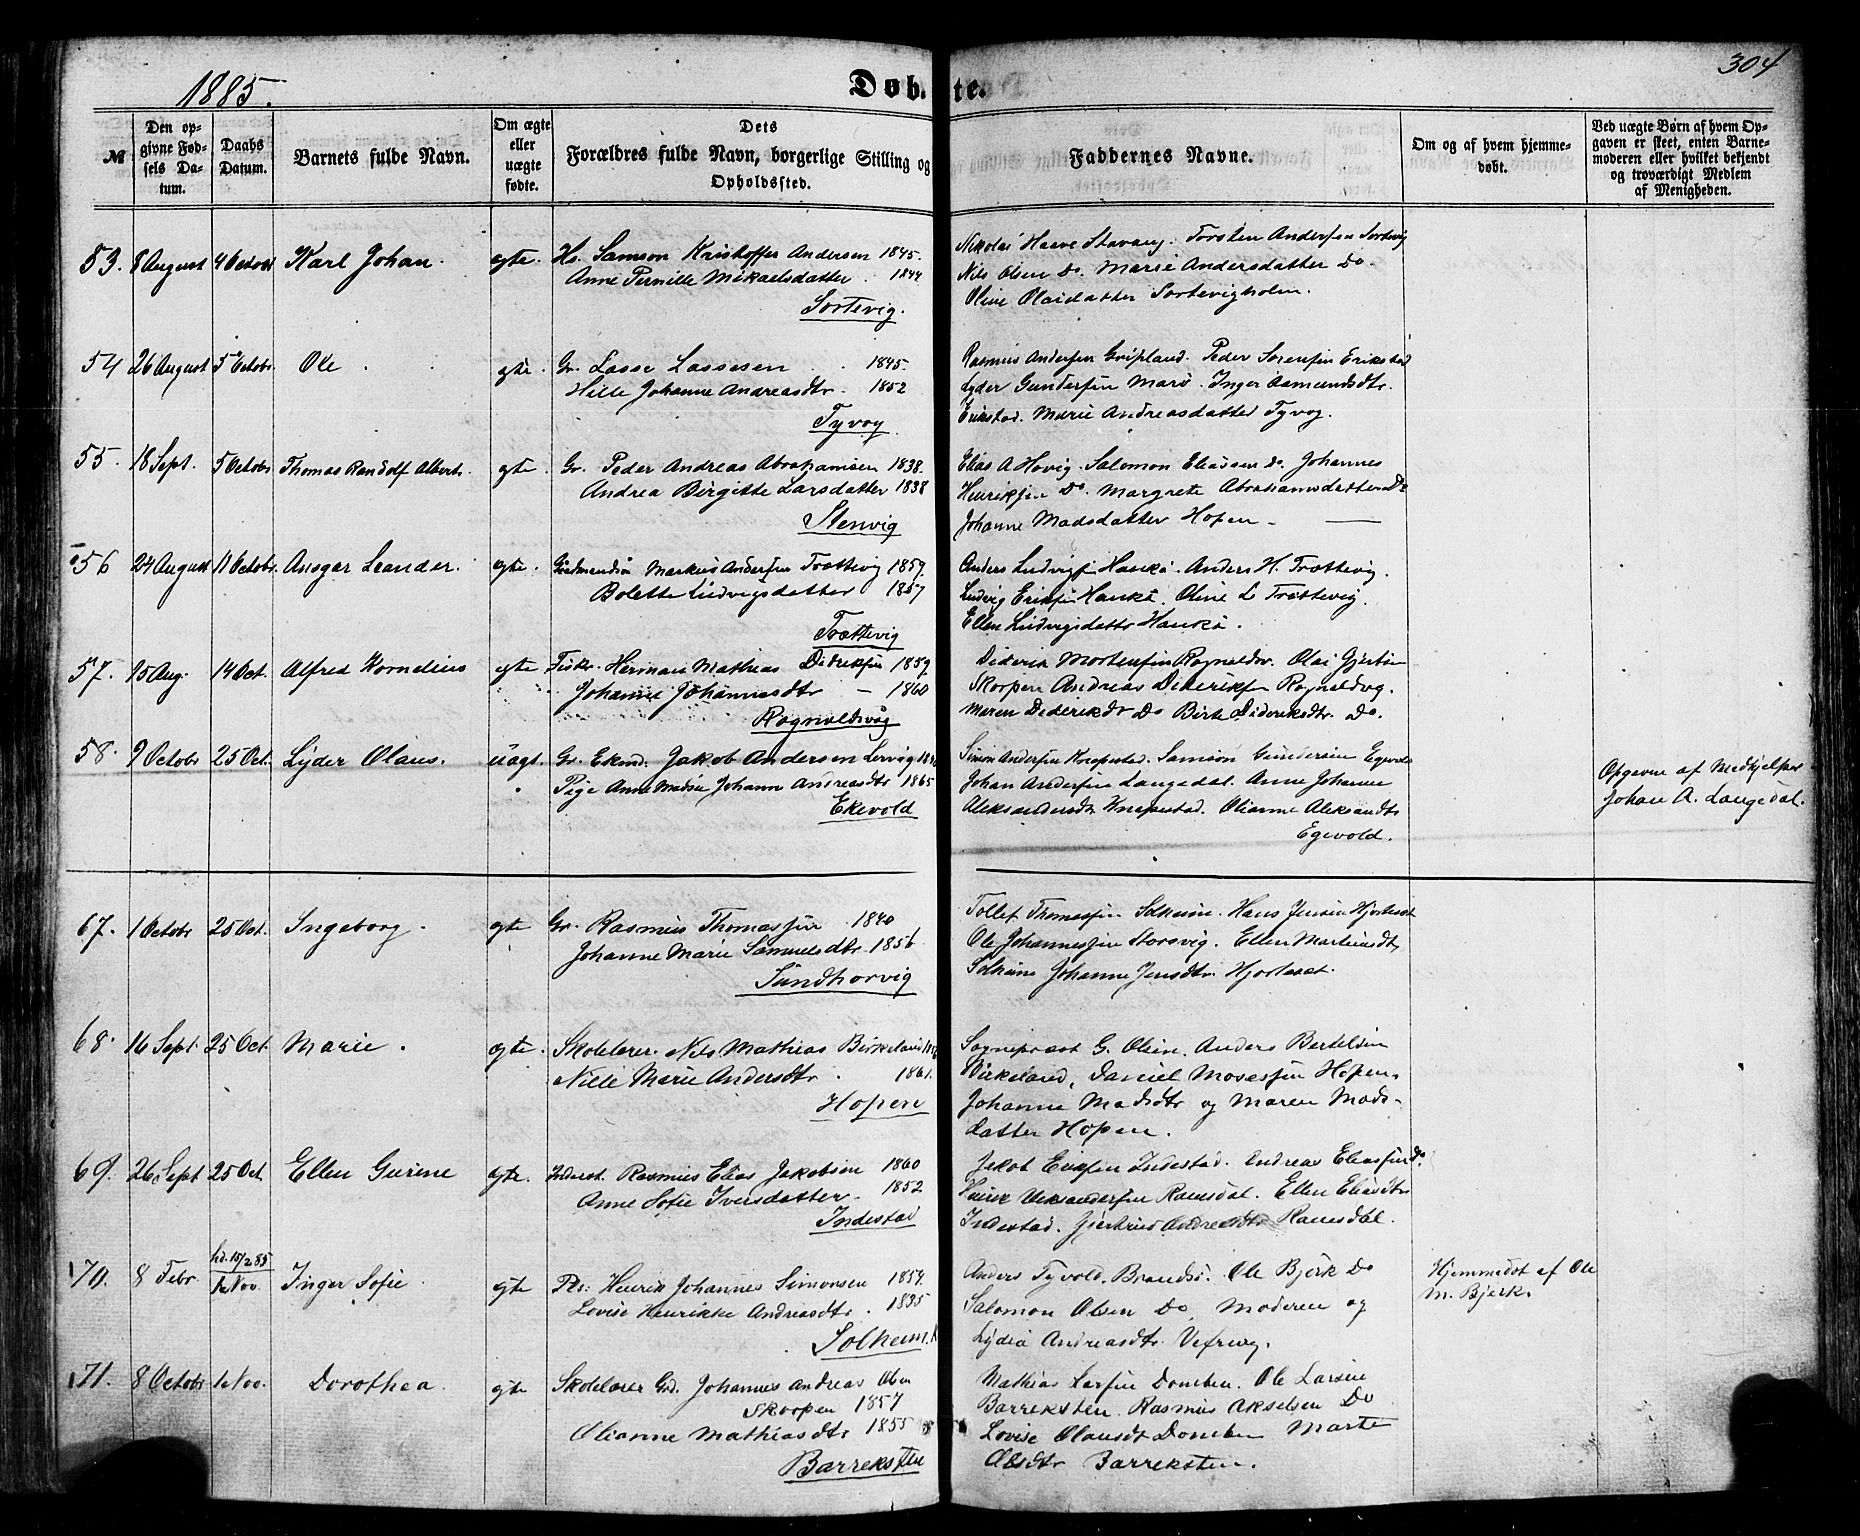 1885.
Døbte.
304
№
Den opgivne Fødsels Datum.
Daabs Datum.
Barnets fulde Navn.
Om ægte eller uægte fødte.
Dets Forældres fulde Navn, borgerlige Stilling og Opholdssted.
Faddernes Navne.
Om og af hvem hjemmedøbt.
Ved uægte Børn af hvem Opgaven er skeet, enten Barnemoderen eller hvilket bekjendt og troværdigt Medlem af Menigheden.
53. 8 August 4 Octobr Karl Johan. egte. Hs. Samson Kristoffer Andersen 1845.
Anne Pernille Mikaelsdatter. 1844
Sortevig.
Nikolai Haave Stavang. Torsten Andersen Sortevig
Nils Olsen Do. Marie Andersdatter Do.
Oline Olaidatter Sortevigholm.
54 26 August 5 Octobr Ole. egte. Gr. Lasse Lassesen 1845.
Hille Johanne Andreasdtr. 1852
Tyvog
Rasmus Andersen Gripland. Peder Sørensen Erikstad
Lyder Gundersen Marø. Inger Aamundsdtr.
Erikstad. Marie Andreasdatter Tyvog.
55. 18 Sept. 5 Octobr Thomas Randolf Albert. egte. Gr. Peder Andreas Abrahamsen 1838.
Andrea Birgitte Larsdatter 1838
Stenvig
Elias A Hovig. Salomon Eliassen Do. Johannes
Henriksen Do. Margrete Abrahamsdatter Do
Johanne Madsdatter Hopen.
56 24 August 11 Octobr. Ansgar Leander. egte. Gårdmandsøn Markus Andersen Trættevig 1859.
Bolette Ludvigsdatter 1857
Trættevig
Anders Ludvigsen Hankø. Anders H. Trættevig.
Ludvig Eriksen Hankø. Oline L Trættevig.
Ellen Ludvigsdatter Hankø.
57. 15 Aug. 14 Oct. Alfred Kornelius egte Fisker. Herman Mathias Didriksen 1859.
Johanne Johannesdtr 1860
Rognaldsvåg
Diderik Mortensen Rognaldsv. Olai Gjertsen
Skorpen Andreas Dideriksen Rognaldsvg.
Maren Dideriksdtr Do Berte Dideriksdtr. Do.
58. 9 Octobr 25 Oct. Lyder Olaus. uægt. Gr. Jakob Andersen Lervig
Pige Anne Johanne Andreasdtr 1865
Ekevold
Simon Andersen Knapestad. Samson Gundersen Egevold
Johan Andersen Langedal. Anne Johanne
Aleksandersdtr Knapestad. Olianne Aleksandtr
Egevold.
Opgaven af Medhjelper
Johan A. Langedal.
67. 1 Octobr 25 Oct. Ingeborg. egte Gr. Rasmus Thomassen 1840
Johanne Marie Samuelsdtr. 1856.
Sundhorvig
Tollef Thomassen Solheim. Hans Jensen Hjorteset
Ole Johannessen Storsvig. Ellen Martinusdtr
Solheim Johanne Jensdtr. Hjorteset.
68. 16 Sept. 25 Oct. Marie. egte. Skolelærer. Nils Mathias Birkeland
Nille Marie Andersdtr. 1861.
Hopen
Sognepræst G. Olsen. Anders Bertelsen
Birkeland, Daniel Mosessen Hopen.
Johanne Madsdtr og Maren Mads-
datter Hopen.
69. 26 Sept 25 Oct Ellen Gurine egte. Inderst. Rasmus Elias Jakobsen 1860
Anne Sofie Iversdatter. 1852
Indestad
Jakob Eriksen Indestad. Andreas Eliassen Do.
Henrik Aleksandersen Ramsdal. Ellen Eliasdtr
Indestad. Gjertrud Andreasdtr Ramsdal.
70. 8 Febr. hd. 15/2 85
1 Nov. Inger Sofie. egte Pls. Henrik Johannes Simonsen 1859.
Lovise Henrikke Andreasdtr. 1835
Solheim.
Anders Tyvold. Brandsø. Ole Bjerk Do
Salomon Olsen Do. Moderen og
Lydia Andreasdtr. Vefring.
Hjemmedøbt af Ole
M. Bjerk.
71. 8 Octobr 1 Nov. Dorothea. egte Skolelærer Grd. Johannes Andreas Olsen
Skorpen 1857
Olianne Mathiasdtr 1855
Barreksten
Mathias Larsen Domben. Ole Larsen
Barreksten. Rasmus Akselsen Do
Lovise Olausdtr Domben Marte
Olsdtr Barreksten.